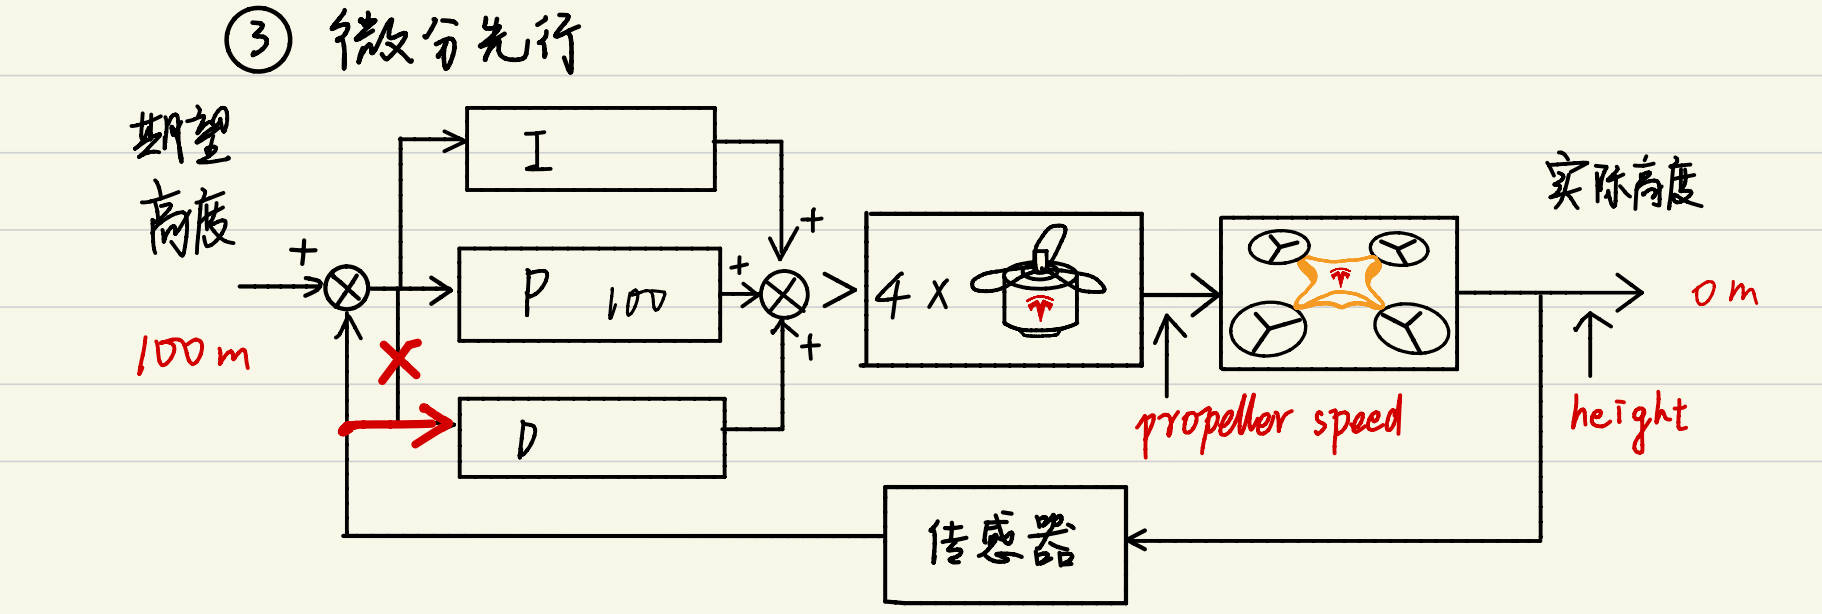 ③ 微分先行
期望
高度
+
100m
I
P 100
D
+
+
+
4 x
propeller speed
实际高度
0 m
height
传感器